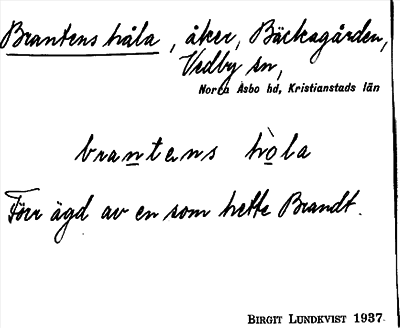 Brantens håla, åker, Bäckagården,
Vedby sn,
Norra Åsbo hd, Kristianstads län
brantens hòla
Förr ägd av en som hette Brandt.
BIRGIT LUNDKVIST 1937.